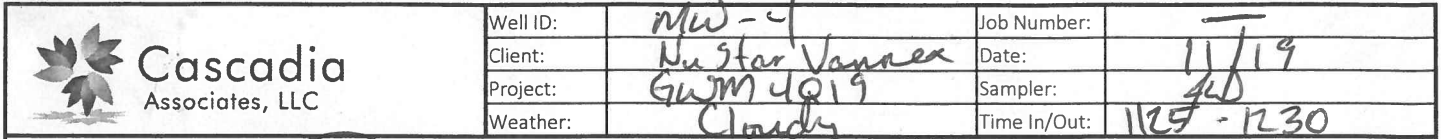 Cascadia
Associates, LLC
Well ID: MW-4 Job Number: —
Client: NuStar Vannex Date: 11/19
Project: GWM 4Q19 Sampler:
Weather: Cloudy Time In/Out: 1125 - 1230